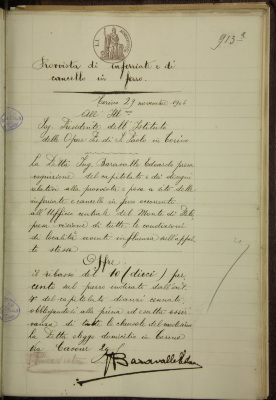 913³
Provvista di inferriate e di
cancello in ferro.
Torino 29 novembre 1906
All' Ill.mo
Sig. Presidente dell' Istituto
delle Opere Pie di S. Paolo in Torino
La Ditta Ing. Baravalle Edoardo presa
cognizione del capitolato e dei disegni
relativi alla provvista e posa in sito delle
inferriate e cancello in ferro occorrente
all'Ufficio centrale del Monte di Pietà
presa visione di tutte le condizioni
di località aventi influenza nell'appal
to stesso
Offre
Il ribasso del 10 (dieci) per
cento sul prezzo indicato dall'art.
4º del capitolato dianzi cennato,
obbligandosi alla piena ed esatta osser
vanza di tutte le clausole del medesimo
La Ditta elegge domicilio in Torino
Via Cavour 24
Baravalle